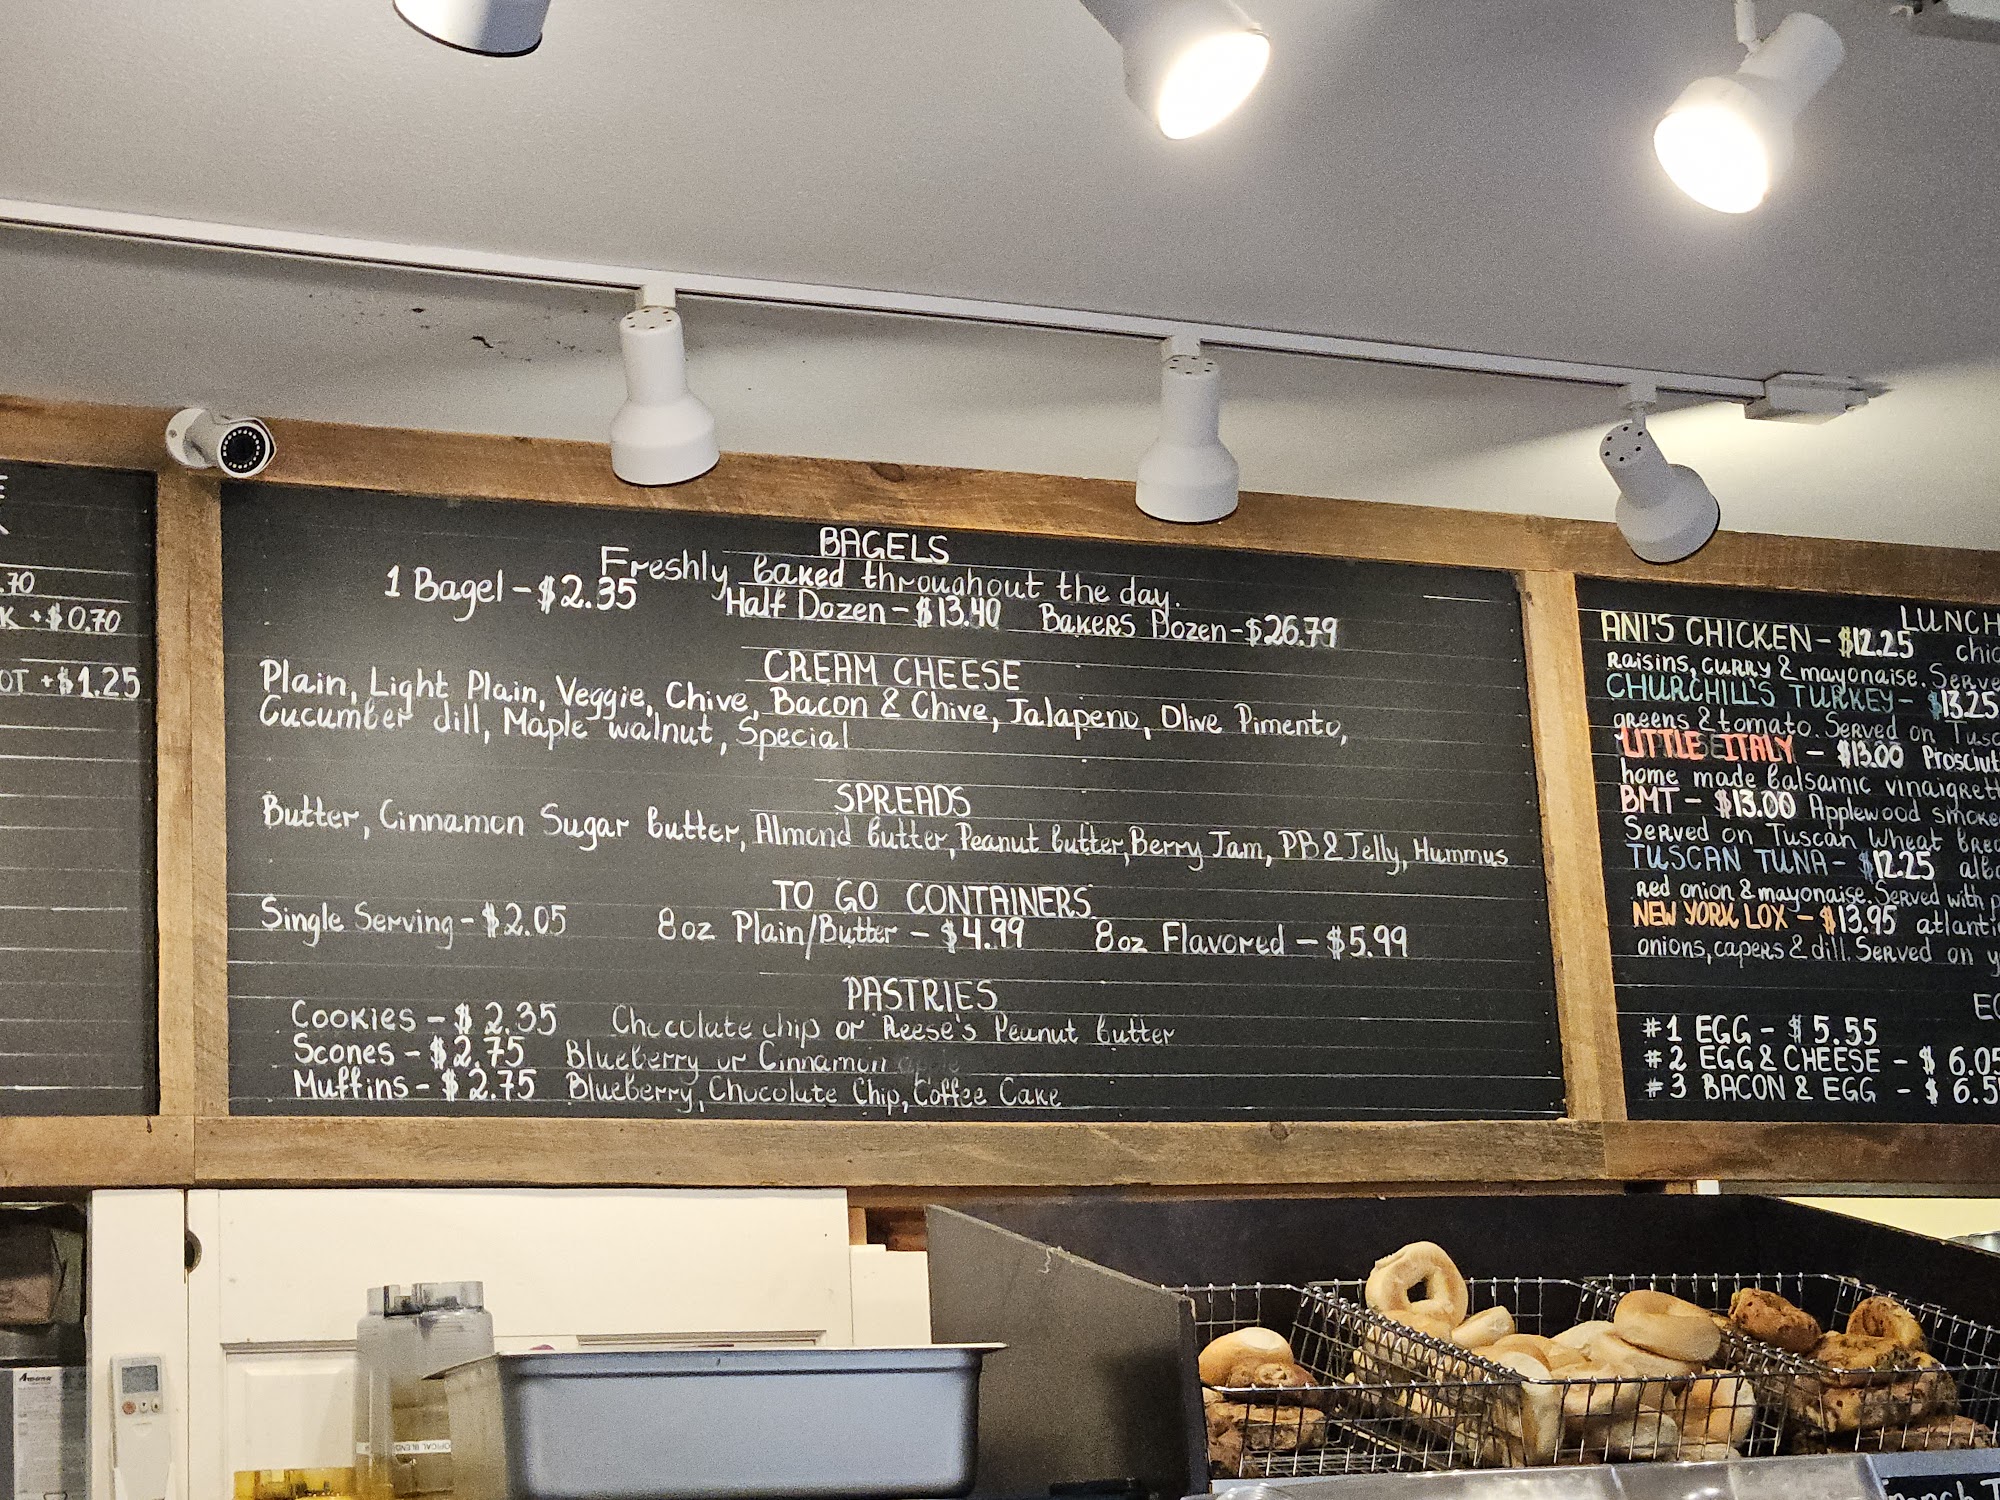 .70
K +$0.70
OT +$1.25
BAGELS
Freshly baked throughout the day.
1 Bagel - $2.35 Half Dozen - $13.40 Bakers Dozen - $26.79
CREAM CHEESE
Plain, Light Plain, Veggie, Chive, Bacon & Chive, Jalapeno, Olive Pimento,
Cucumber dill, Maple walnut, Special
SPREADS
Butter, Cinnamon Sugar Butter, Almond butter, Peanut butter, Berry Jam, PB & Jelly, Hummus
TO GO CONTAINERS
Single Serving - $2.05 8oz Plain/Butter - $4.99 8oz Flavored - $5.99
PASTRIES
Cookies - $2.35 Chocolate chip or Reese's Peanut butter
Scones - $2.75 Blueberry or Cinnamon apple
Muffins - $2.75 Blueberry, Chocolate Chip, Coffee Cake
LUNCH
ANI'S CHICKEN - $12.25 chic
Raisins, curry & mayonaise. Serve
CHURCHILL'S TURKEY - $13.25
greens & tomato. Served on Tusc
LITTLE ITALY - $13.00 Prosciut
home made balsamic vinaigrett
BMT - $13.00 Applewood smoke
Served on Tuscan Wheat brea
TUSCAN TUNA - $12.25 alba
red onion & mayonaise. Served with p
NEW YORK LOX - $13.95 atlanti
onions, capers & dill. Served on y
EG
#1 EGG - $5.55
#2 EGG & CHEESE - $6.05
#3 BACON & EGG - $6.5
Amana